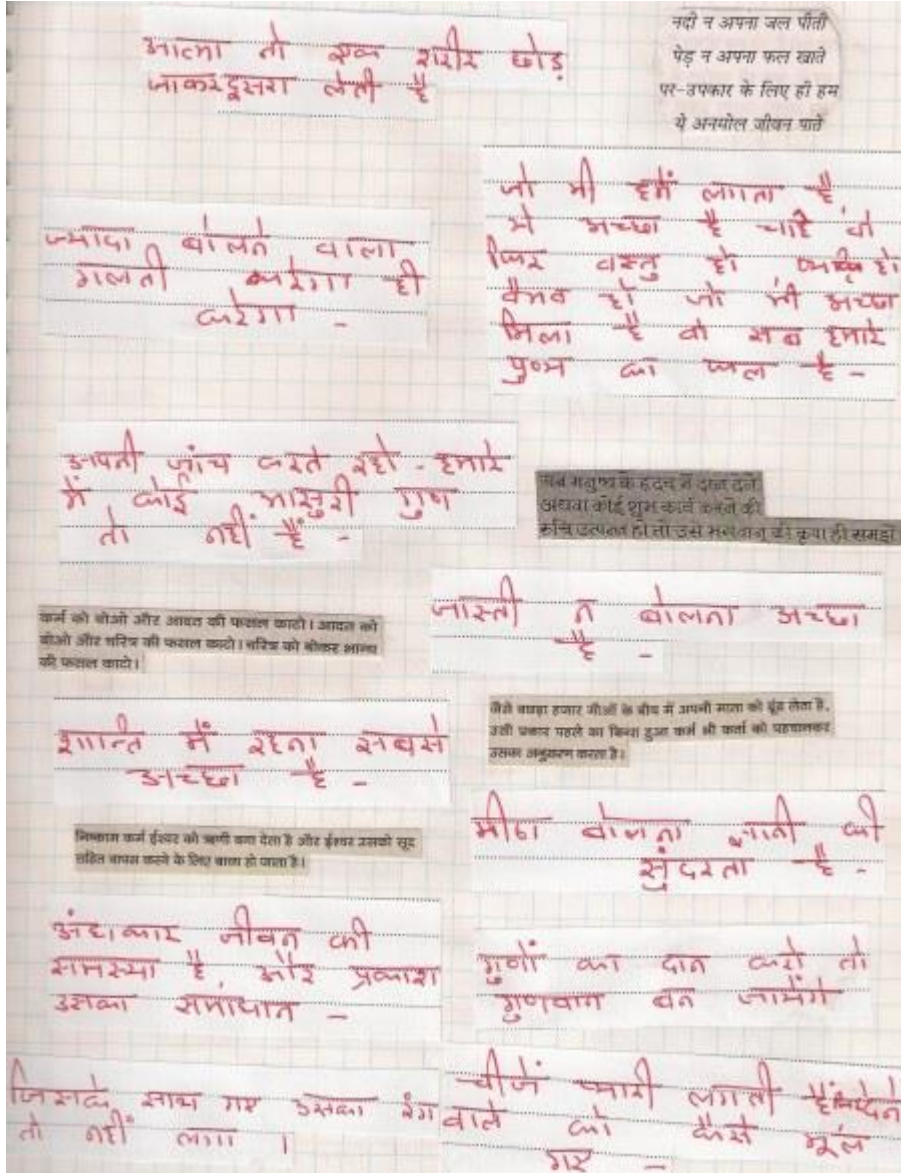 आत्मा तो एक शरीर छोड़
जाकर दूसरा लेती है
नदी न अपना जल पीती
पेड़ न अपना फल खाते
पर-उपकार के लिए ही हम
ये अनमोल जीवन पाते
जो भी हमें लगता है
ये अच्छा है चाहे वो
फिर वस्तु हो व्यक्ति हो
वैभव हो जो भी अच्छा
मिला है वो सब हमारे
पुण्य का फल है -
ज्यादा बोलने वाला
गलती करेगा ही
करेगा -
अपनी जांच करते रहो - हमारे
में कोई आसुरी गुण
तो नहीं हैं -
जब मनुष्य के हृदय में दान देने
अथवा कोई शुभ कार्य करने की
रुचि उत्पन्न हो तो उसे भगवान् की कृपा ही समझो
जास्ती न बोलना अच्छा
है -
कर्म को बोओ और आदत की फसल काटो। आदत को
बोओ और चरित्र की फसल काटो। चरित्र को बोकर भाग्य
की फसल काटो।
शान्ति में रहना सबसे
अच्छा है -
जैसे बछड़ा हजार गौओं के बीच में अपनी माता को ढूंढ लेता है,
उसी प्रकार पहले का किया हुआ कर्म भी कर्ता को पहचानकर
उसका अनुकरण करता है।
निष्काम कर्म ईश्वर को ऋणी बना देता है और ईश्वर उसको सूद
सहित वापस करने के लिए बाध्य हो जाता है।
मीठा बोलना ज्ञानी की
सुंदरता है -
अंधकार जीवन की
समस्या है और प्रकाश
उसका समाधान -
गुणों का दान करो तो
गुणवान बन जायेंगे
जिसके साथ गए उसका रंग
तो नहीं लगा ।
चीजें प्यारी लगती हैं देने
वाले को कैसे भूल
गए -